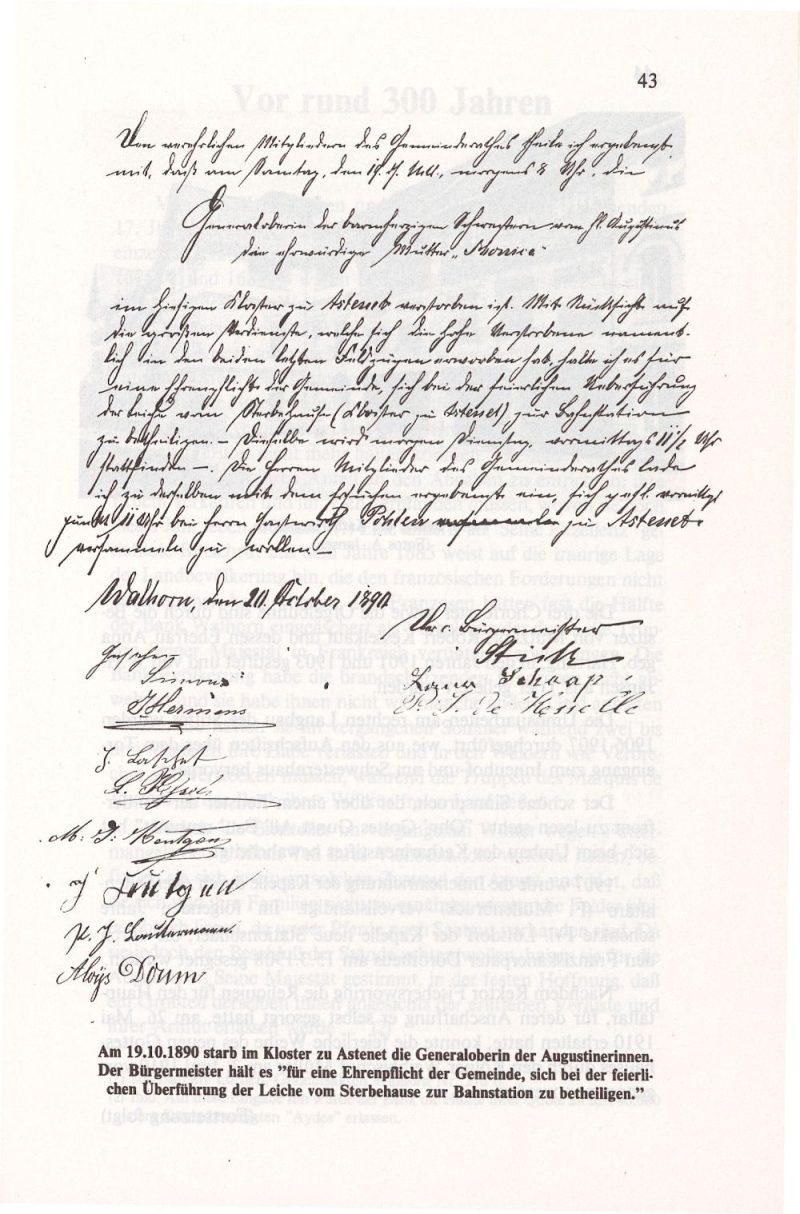 43
Den verehrlichen Mitgliedern des Gemeinderathes theile ich ergebenst
mit, daß am Sonntag, den 19. d. Mts., morgens 8 Uhr, die
Generaloberin der barmherzigen Schwestern vom hl. Augustinus
die ehrwürdige Mutter „Monica“
im hiesigen Kloster zu Astenet verstorben ist. Mit Rücksicht auf
die großen Verdienste, welche sich die hohe Verstorbene nament-
lich in den beiden letzten Feldzügen erworben hat, halte ich es für
eine Ehrenpflicht der Gemeinde, sich bei der feierlichen Ueberführung
der Leiche vom Sterbehause (Kloster zu Astenet) zur Bahnstation
zu betheiligen. – Dieselbe wird morgen Dienstag, vormittags 11½ Uhr
stattfinden –. Die Herren Mitglieder des Gemeinderathes lade
ich zu derselben mit dem Ersuchen ergebenst ein, sich gefl. vormittgs
11 Uhr bei Herrn Gastwirth zu Astenet
versammeln zu wollen –
Walhorn, den 20. October 1890
Der c. Bürgermeister
Gesehen
Simons
Schaaf
J Hermens
J. Laschet
M. J. Kentgens
P. J. Lautermann
Aloys Doum
Am 19.10.1890 starb im Kloster zu Astenet die Generaloberin der Augustinerinnen.
Der Bürgermeister hält es ”für eine Ehrenpflicht der Gemeinde, sich bei der feierli-
chen Überführung der Leiche vom Sterbehause zur Bahnstation zu betheiligen.”